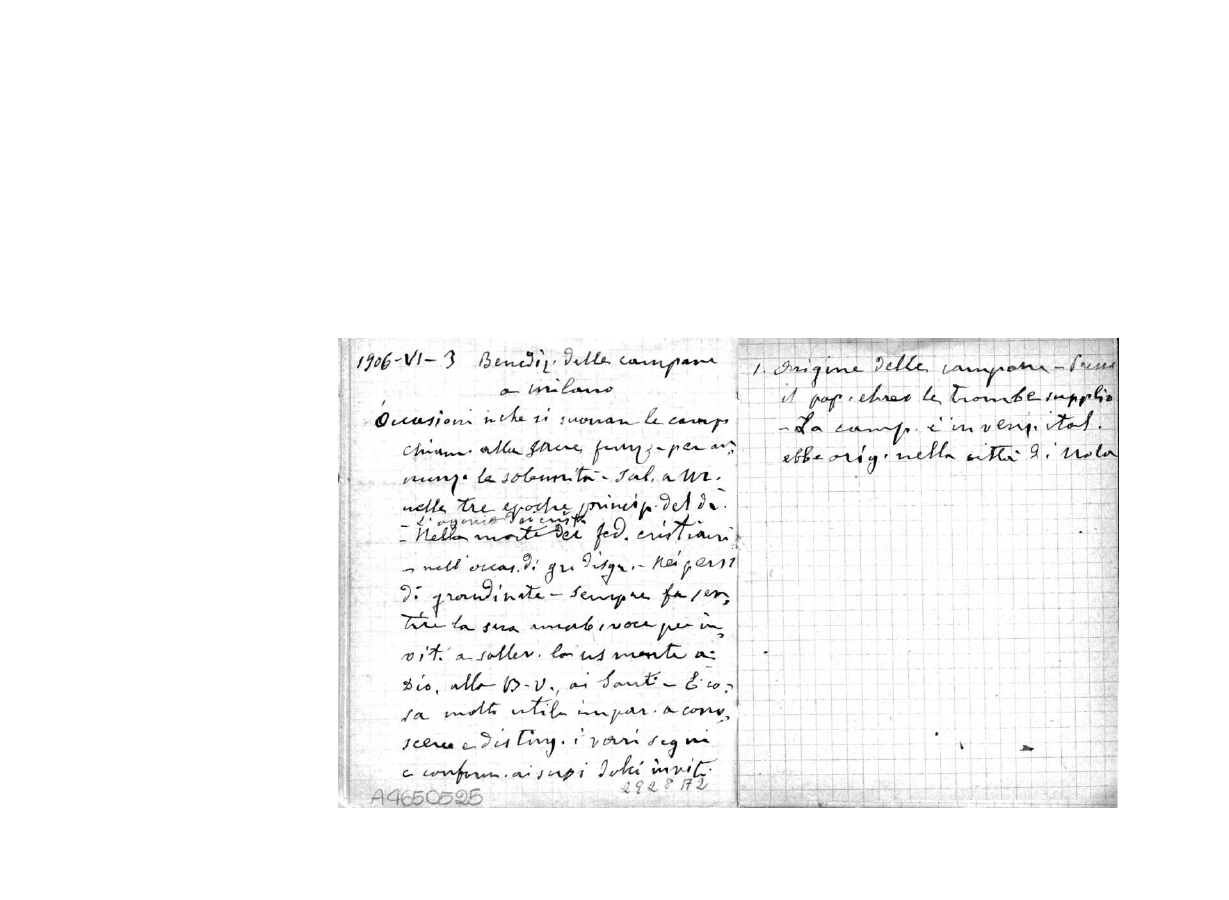 1906-VI-3 Benediz. delle campane
a Milano
Occasioni in che si suonan le camp
chiam. alle sacre funz. - per an=
nunz. la solennità - Sal. a M.
nelle tre epoche princip. del dì.
- L'agonia dei crist.
- Nella morte dei fed. cristiani
- nell'occas. di gr. disgr. - Nei peri
di grandinate - Sempre fa sen=
tire la sua amab. voce per in=
vit. a soller. la ns mente a
Dio, alla B-V., ai Santi - È co=
sa molto utile impar. a cono=
scere e disting. i varri segni
e conform. ai suoi dolci inviti.
A4650525
2928172
1. Origine delle campane - Presso
il pop. ebreo le trombe supplio
- La camp. è invenz. ital.
ebbe orig. nella città di Nola